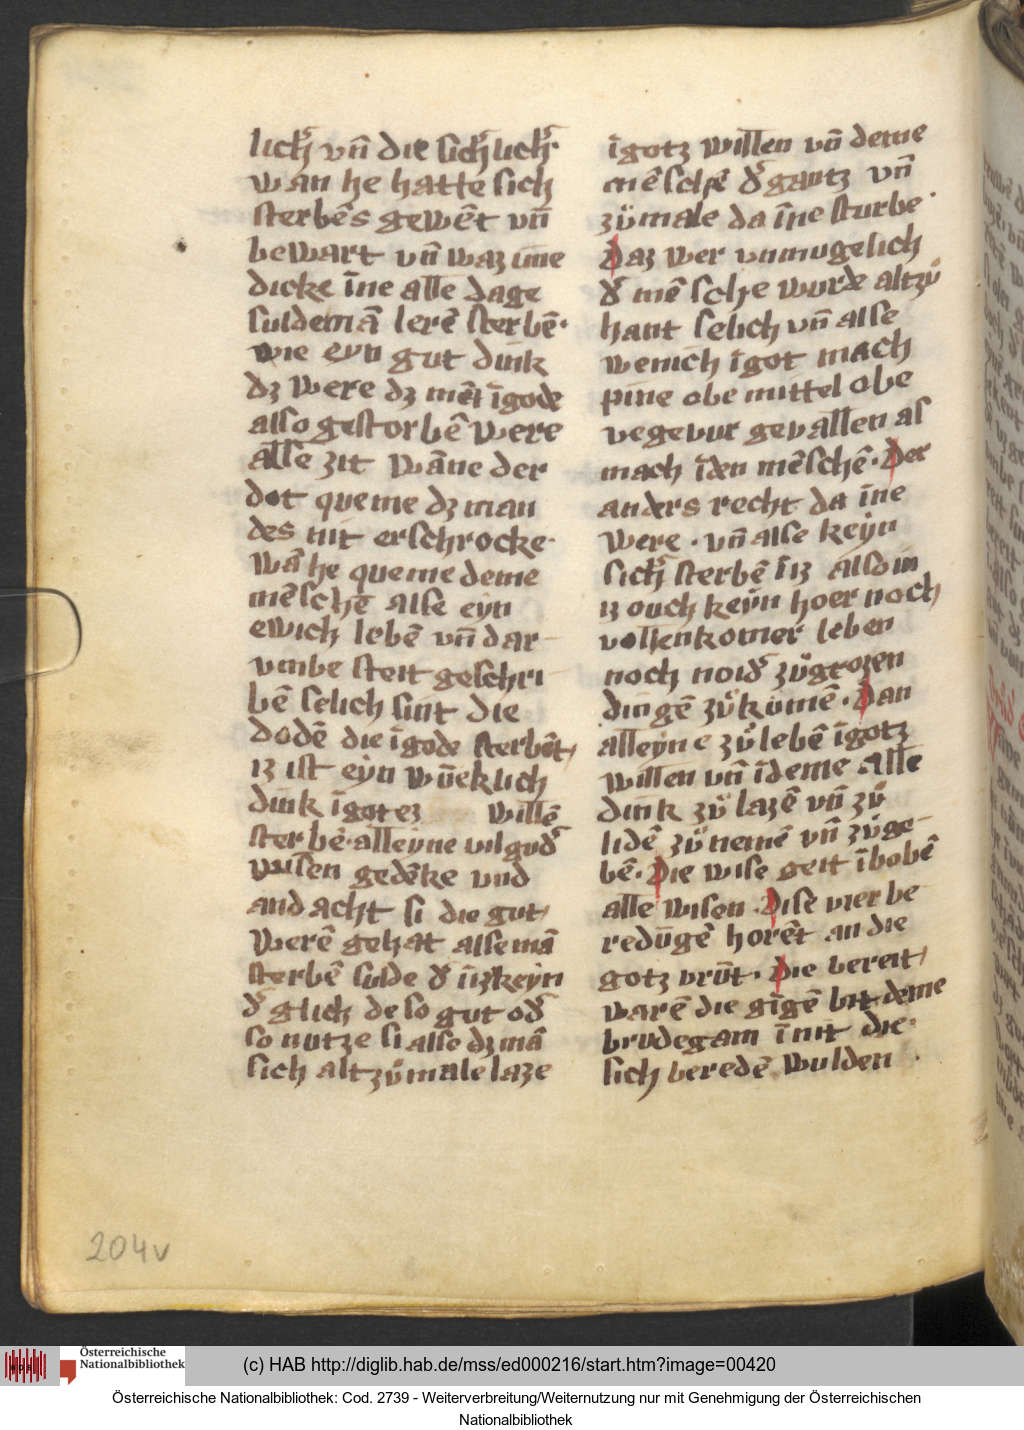 licħ vn̄ die sicħlicħ·
wan he hatte sich
sterbēs gewēt vn̄
bewart vn̄ waz ime
dicke īne alle dage
suldemā lerē sterbē·
wie eyn gut dink
dz were dz mēt īgode
also gestorbē were
alle zit wāne der
dot queme dz man
des nit erschrocke·
wā he queme deme
mēsche alse eyn
ewich lebē vn̄ dar
vmbe steit geschri
bē selich sint die
dodē die īgode sterbēt
iz ist eyn wūeklich
dink īgotez willē
sterbē·alleyne vil gud᷑
wisen gedēke vnd
andacht si die gut
werē gehat alsemā
sterbē sulde d᷑ iīzkeyn
d᷑ glich de so gut od᷑
so nutze si also dz mā
sich altzůmale laze
īgotz willen vn̄ deme
mēschē d᷑ gantz vn̄
zůmale da īne sturbe·
Daz wer vnmugelich
d᷑ mēsche wurde altzů
hant selich vn̄ alse
wenich īgot mach
pine obe mittel obe
vegevur gevallen als
mach īden mēschē· Der
anders recht da īne
were · vn̄ alse keyn
sicħ sterbē īiz also in
iz ouch keyn hoer noch
vollenkomer leben
noch noid᷑ zůgrozen
dingē zůkumē · Dan
alleyne zů lebē īgotz
willen vn̄ īdeme alle
dink zů lazē vn̄ zů
lidē zů nemē vn̄ zůge-
bē· Die wise geit ībobē
alle wisen· Dise vier be
redūgē horēt an die
gotz brūt· Die bereit
warē die gīgē bit deme
brudegam īnit die·
sich beredē wulden ·
204v
Österreichische
Nationalbibliothek
(c) HAB http://diglib.hab.de/mss/ed000216/start.htm?image=00420
Österreichische Nationalbibliothek: Cod. 2739 - Weiterverbreitung/Weiternutzung nur mit Genehmigung der Österreichischen
Nationalbibliothek